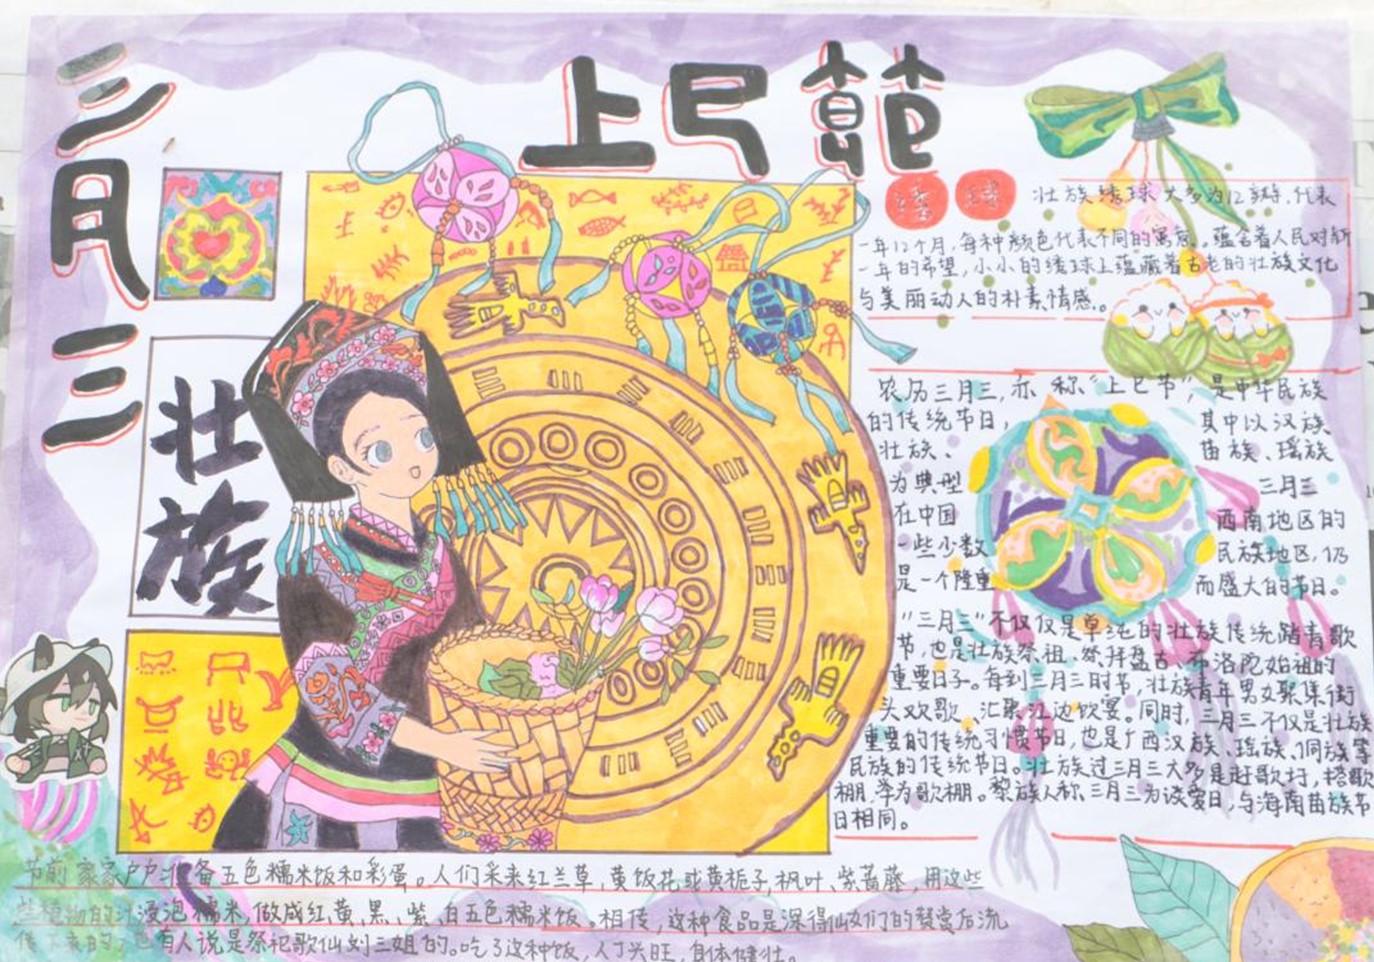 三月三
上巳節
壮族
绣球
壮族绣球大多为12瓣,代表
一年12个月,每种颜色代表不同的寓意。蕴含着人民对新
一年的希望,小小的绣球上蕴藏着古老的壮族文化
与美丽动人的朴素情感。
农历三月三,亦称“上巳节”,是中华民族
的传统节日,其中以汉族、
壮族、苗族、瑶族
为典型 三月三
在中国西南地区的
一些少数民族地区,仍
是一个隆重而盛大的节日。
“三月三”不仅仅是单纯的壮族传统踏青歌
节,也是壮族祭祖、祭拜盘古、布洛陀始祖的
重要日子。每到三月三时节,壮族青年男女聚集街
头欢歌、汇聚江边饮宴。同时,三月三不仅是壮族
重要的传统习惯节日,也是广西汉族、瑶族、侗族等
民族的传统节日。壮族过三月三大多是赶歌圩,搭歌
棚,举为歌棚。黎族人称三月三为谈爱日,与海南苗族节
日相同。
节前家家户户准备五色糯米饭和彩蛋。人们采来红兰草,黄饭花或黄栀子,枫叶、紫蕃藤,用这些
植物的汁浸泡糯米,做成红、黄、黑、紫、白五色糯米饭。相传,这种食品是深得仙女们的赞赏后流
传下来的,也有人说是祭祀歌仙刘三姐的。吃了这种饭,人丁兴旺,身体健壮。